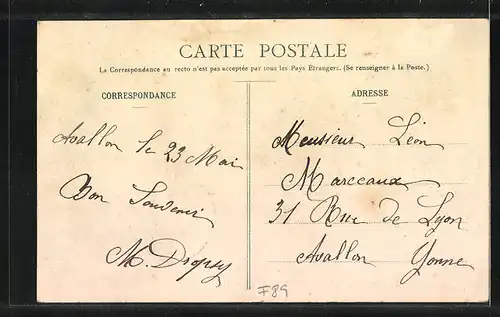 CARTE POSTALE
La Correspondance au recto n'est pas acceptée par tous les Pays Étrangers. (Se renseigner à la Poste.)
CORRESPONDANCE
Avallon le 23 Mai
Bon Souvenir
M. Dropsy
ADRESSE
Monsieur Léon
Marceaux
31 Rue de Lyon
Avallon Yonne
F89